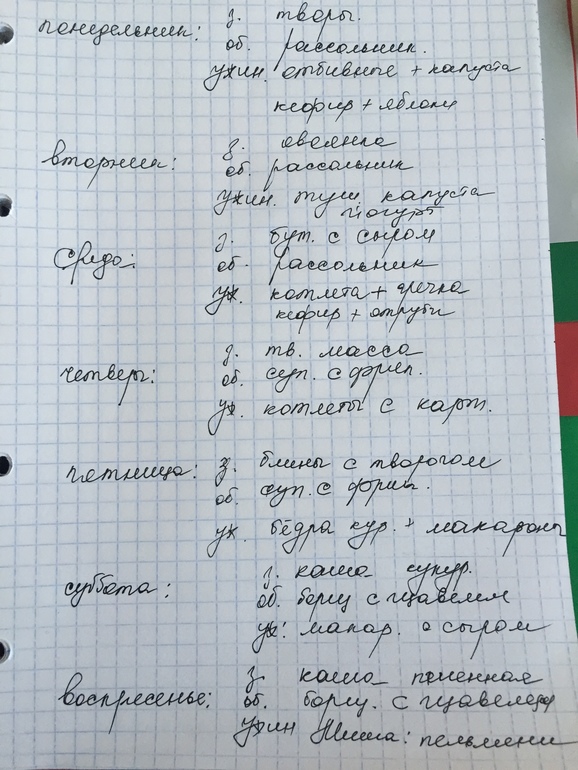 понедельник: з. творог.
об. рассольник.
ужин. отбивные + капуста
кефир + яблоки
вторник: з. овсянка
об. рассольник
ужин. туш. капуста
йогурт
среда: з. бут. с сыром
об. рассольник
уж. котлета + гречка
кефир + отруби
четверг: з. тв. масса
об. суп. с фрик.
уж. котлеты с карт.
пятница: з. блины с творогом
об. суп. с фрик.
уж. бёдра кур. + макароны
суббота: з. каша кукур.
об. борщ с щавелем
уж: макар. с сыром
воскресенье: з. каша пшенная
об. борщ. с щавелем
Ужин Миша: пельмени